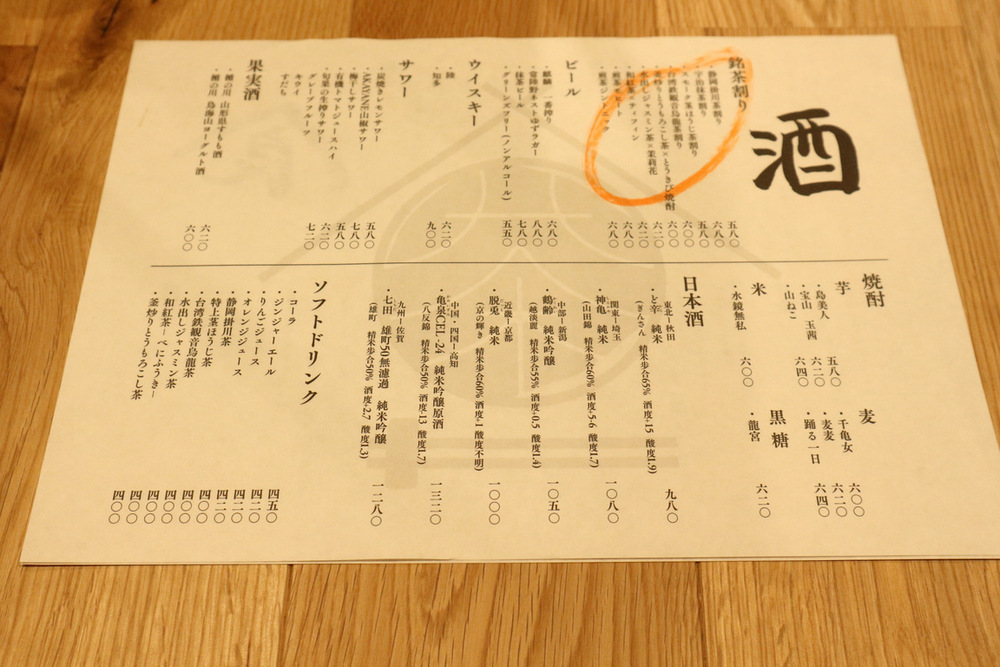 酒
銘茶割り
・静岡掛川茶割り 五八〇
・宇治抹茶割り 六八〇
・スモーク茶ほうじ茶割り 五八〇
・台湾鉄観音烏龍茶割り 六〇〇
・釜炒りとうもろこし茶×とうきび焼酎 六二〇
・水出しジャスミン茶×茉莉花 六二〇
・和紅茶 六八〇
・煎茶 六八〇
ビール
・麒麟 一番搾り 六八〇
・常陸野ネストゆずラガー 八八〇
・抹茶ビール 七八〇
・グリーンズフリー(ノンアルコール) 五五〇
ウイスキー
・陸 六二〇
・知多 九〇〇
サワー
・炭焼きレモンサワー 五八〇
・AKAYANE山椒サワー 七八〇
・梅干しサワー 五八〇
・有機トマトジュースハイ 六二〇
・旬果の生搾りサワー 七二〇
グレープフルーツ
キウイ
すだち
果実酒
・楯の川 山形県すもも酒 六二〇
・楯の川 鳥海山ヨーグルト酒 六〇〇
焼酎
芋
・島美人 五八〇
・宝山 玉茜 六二〇
・山ねこ 六四〇
麦
・千亀女 六〇〇
・麦麦 六二〇
・踊る一日 六四〇
米
・水鏡無私 六〇〇
黒糖
・龍宮 六二〇
日本酒
東北−秋田
・ど辛 純米 九八〇
(ぎんさん 精米歩合65% 酒度+15 酸度1.9)
関東−埼玉
・神亀 純米 一〇八〇
(山田錦 精米歩合60% 酒度+5-6 酸度1.7)
中部−新潟
・鶴齢 純米吟醸 一〇五〇
(越淡麗 精米歩合55% 酒度-0.5 酸度1.4)
近畿−京都
・脱兎 純米 一〇〇〇
(京の輝き 精米歩合60% 酒度+1 酸度不明)
中国・四国−高知
・亀泉CEL-24 純米吟醸原酒 一三二〇
(八反錦 精米歩合50% 酒度-13 酸度1.7)
九州−佐賀
・七田 雄町50無濾過 純米吟醸 一二八〇
(雄町 精米歩合50% 酒度+2.7 酸度1.3)
ソフトドリンク
・コーラ 四五〇
・ジンジャーエール 四二〇
・りんごジュース 四二〇
・オレンジジュース 四二〇
・静岡掛川茶 四〇〇
・特上茎ほうじ茶 四〇〇
・台湾鉄観音烏龍茶 四〇〇
・水出しジャスミン茶 四〇〇
・和紅茶−べにふうき− 四〇〇
・釜炒りとうもろこし茶 四〇〇